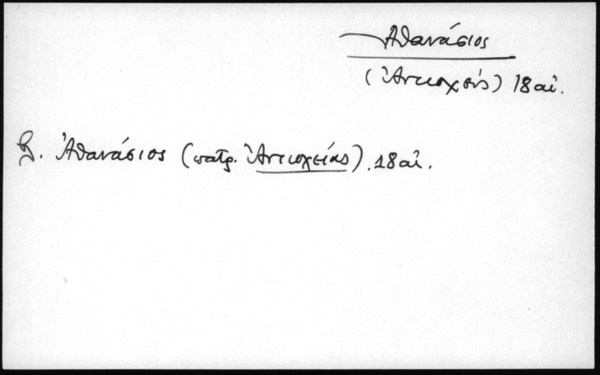 Ἀθανάσιος
(Ἀντιοχεύς) 18 αἰ.
β. Ἀθανάσιος (πατρ. Ἀντιοχείας). 18 αἰ.